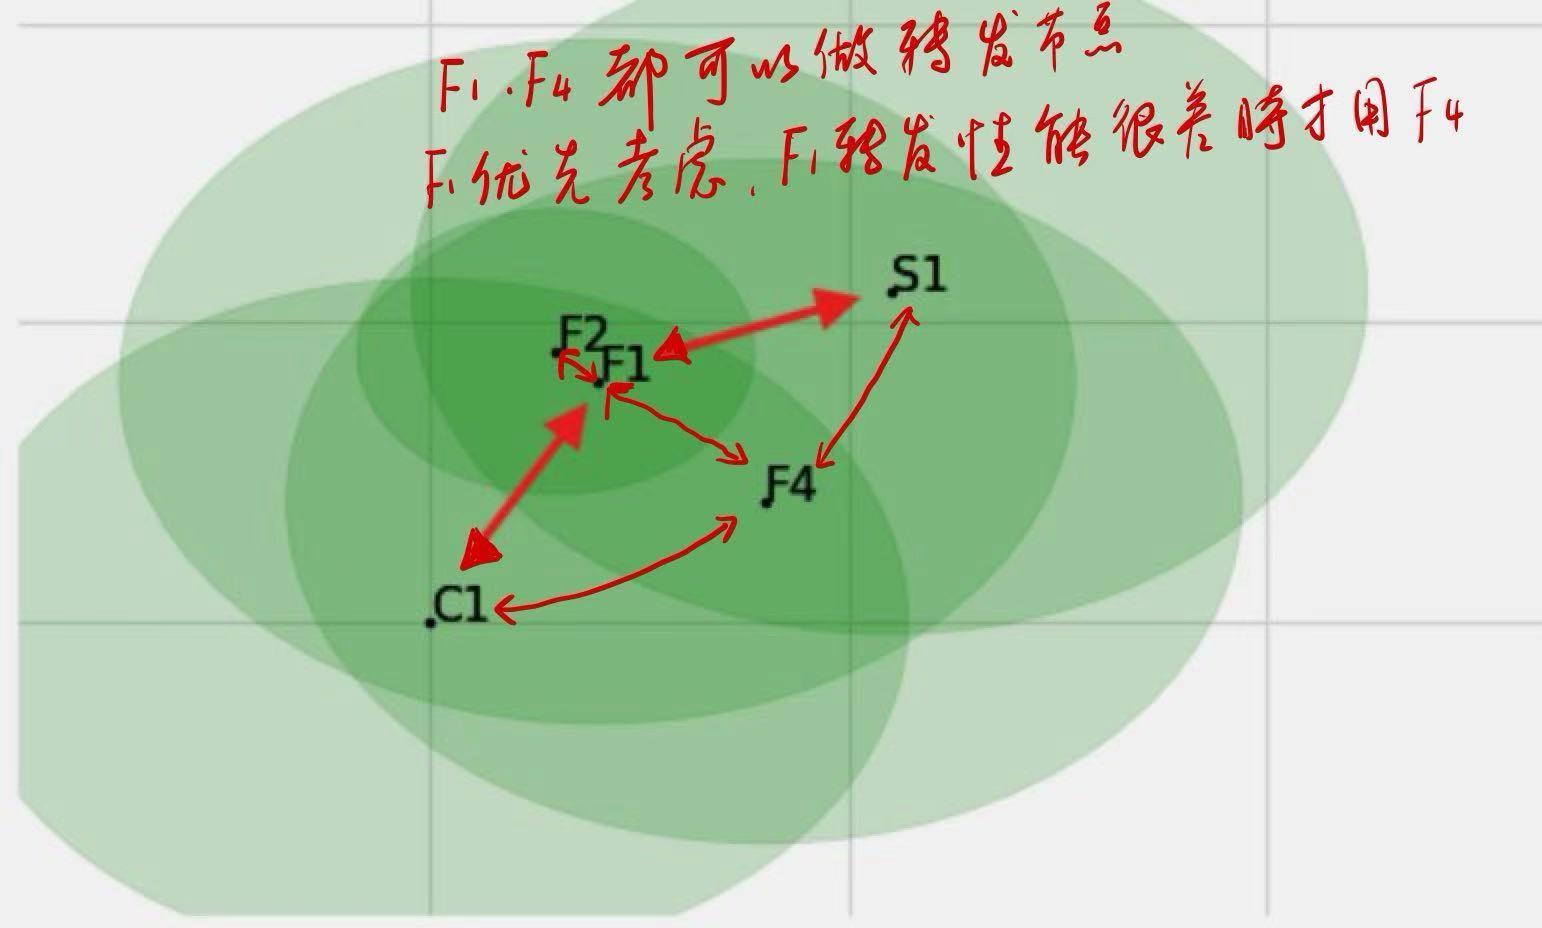 F1.F4都可以做转发节点
F1优先考虑.F1转发性能很差時才用F4
S1
F2
F1
F4
C1